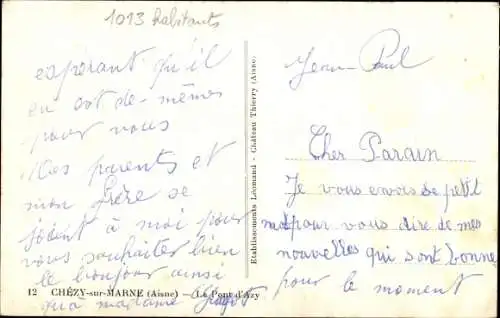 1013 habitants
Jean-Paul
Cher Parain
Je vous envois se petit
mot pour vous dire de mes
nouvelles qui sont bonne
pour le moment
espérant qu'il
en ait de-mêmes
pour vous
Mes parents et
mon frère se
joient à moi pour
vous souhaiter bien
le bonjour ainsi
qu'à madame
Etablissements Léomand - Château Thierry (Aisne)
12 CHÉZY-sur-MARNE (Aisne) — Le Pont d'Azy